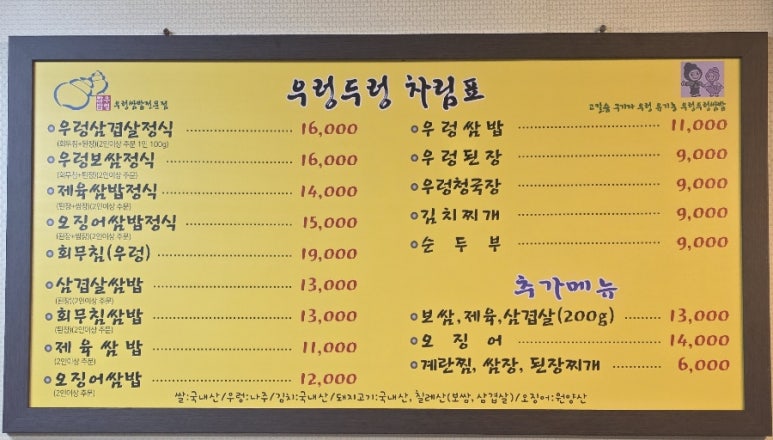 우렁쌈밥전문점
우렁두렁 차림표
고칼슘 구기자 우렁 유기농 우렁두렁쌈밥
우렁삼겹살정식 16,000
(회무침+된장)(2인이상 주문 1인 100g)
우렁보쌈정식 16,000
(회무침+된장)(2인이상 주문)
제육쌈밥정식 14,000
(된장+쌈장)(2인이상 주문)
오징어쌈밥정식 15,000
(된장+쌈장)(2인이상 주문)
회무침(우렁) 19,000
삼겹살쌈밥 13,000
(된장)(2인이상 주문)
회무침쌈밥 13,000
(된장)(2인이상 주문)
제육쌈밥 11,000
(2인이상 주문)
오징어쌈밥 12,000
(2인이상 주문)
우렁쌈밥 11,000
우렁된장 9,000
우렁청국장 9,000
김치찌개 9,000
순두부 9,000
추가메뉴
보쌈,제육,삼겹살(200g) 13,000
오징어 14,000
계란찜, 쌈장, 된장찌개 6,000
쌀:국내산/우렁:나주/김치:국내산/돼지고기:국내산, 칠레산(보쌈, 삼겹살)/오징어:원양산